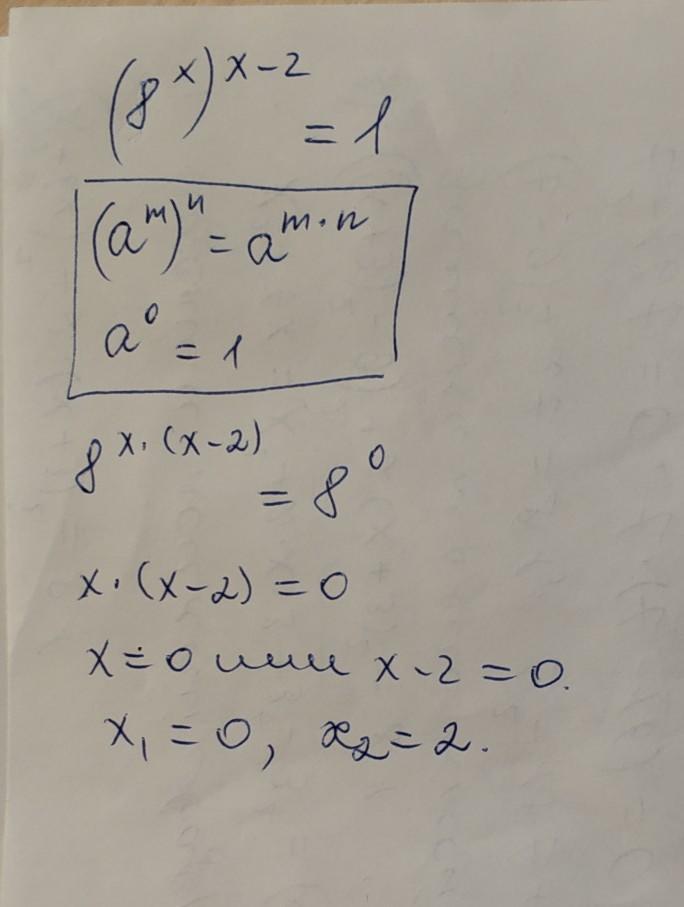 (8^x)^(x-2) = 1
(a^m)^n = a^(m·n)
a^0 = 1
8^(x·(x-2)) = 8^0
x·(x-2) = 0
x = 0 или x-2 = 0.
x₁ = 0, x₂ = 2.